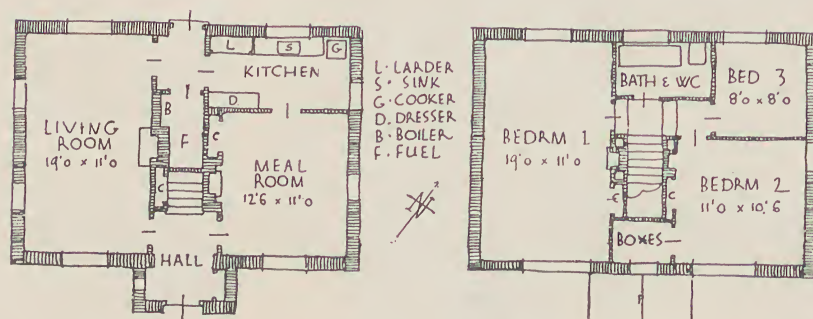 L
S
G
KITCHEN
D
B
C
F
LIVING
ROOM
19'0 × 11'0
MEAL
ROOM
12'6 × 11'0
C
HALL
L · LARDER
S · SINK
G · COOKER
D. DRESSER
B · BOILER
F. FUEL
N
BATH & WC
BED 3
8'0 × 8'0
BEDRM 1
19'0 × 11'0
BEDRM 2
11'0 × 10'6
C
C
BOXES